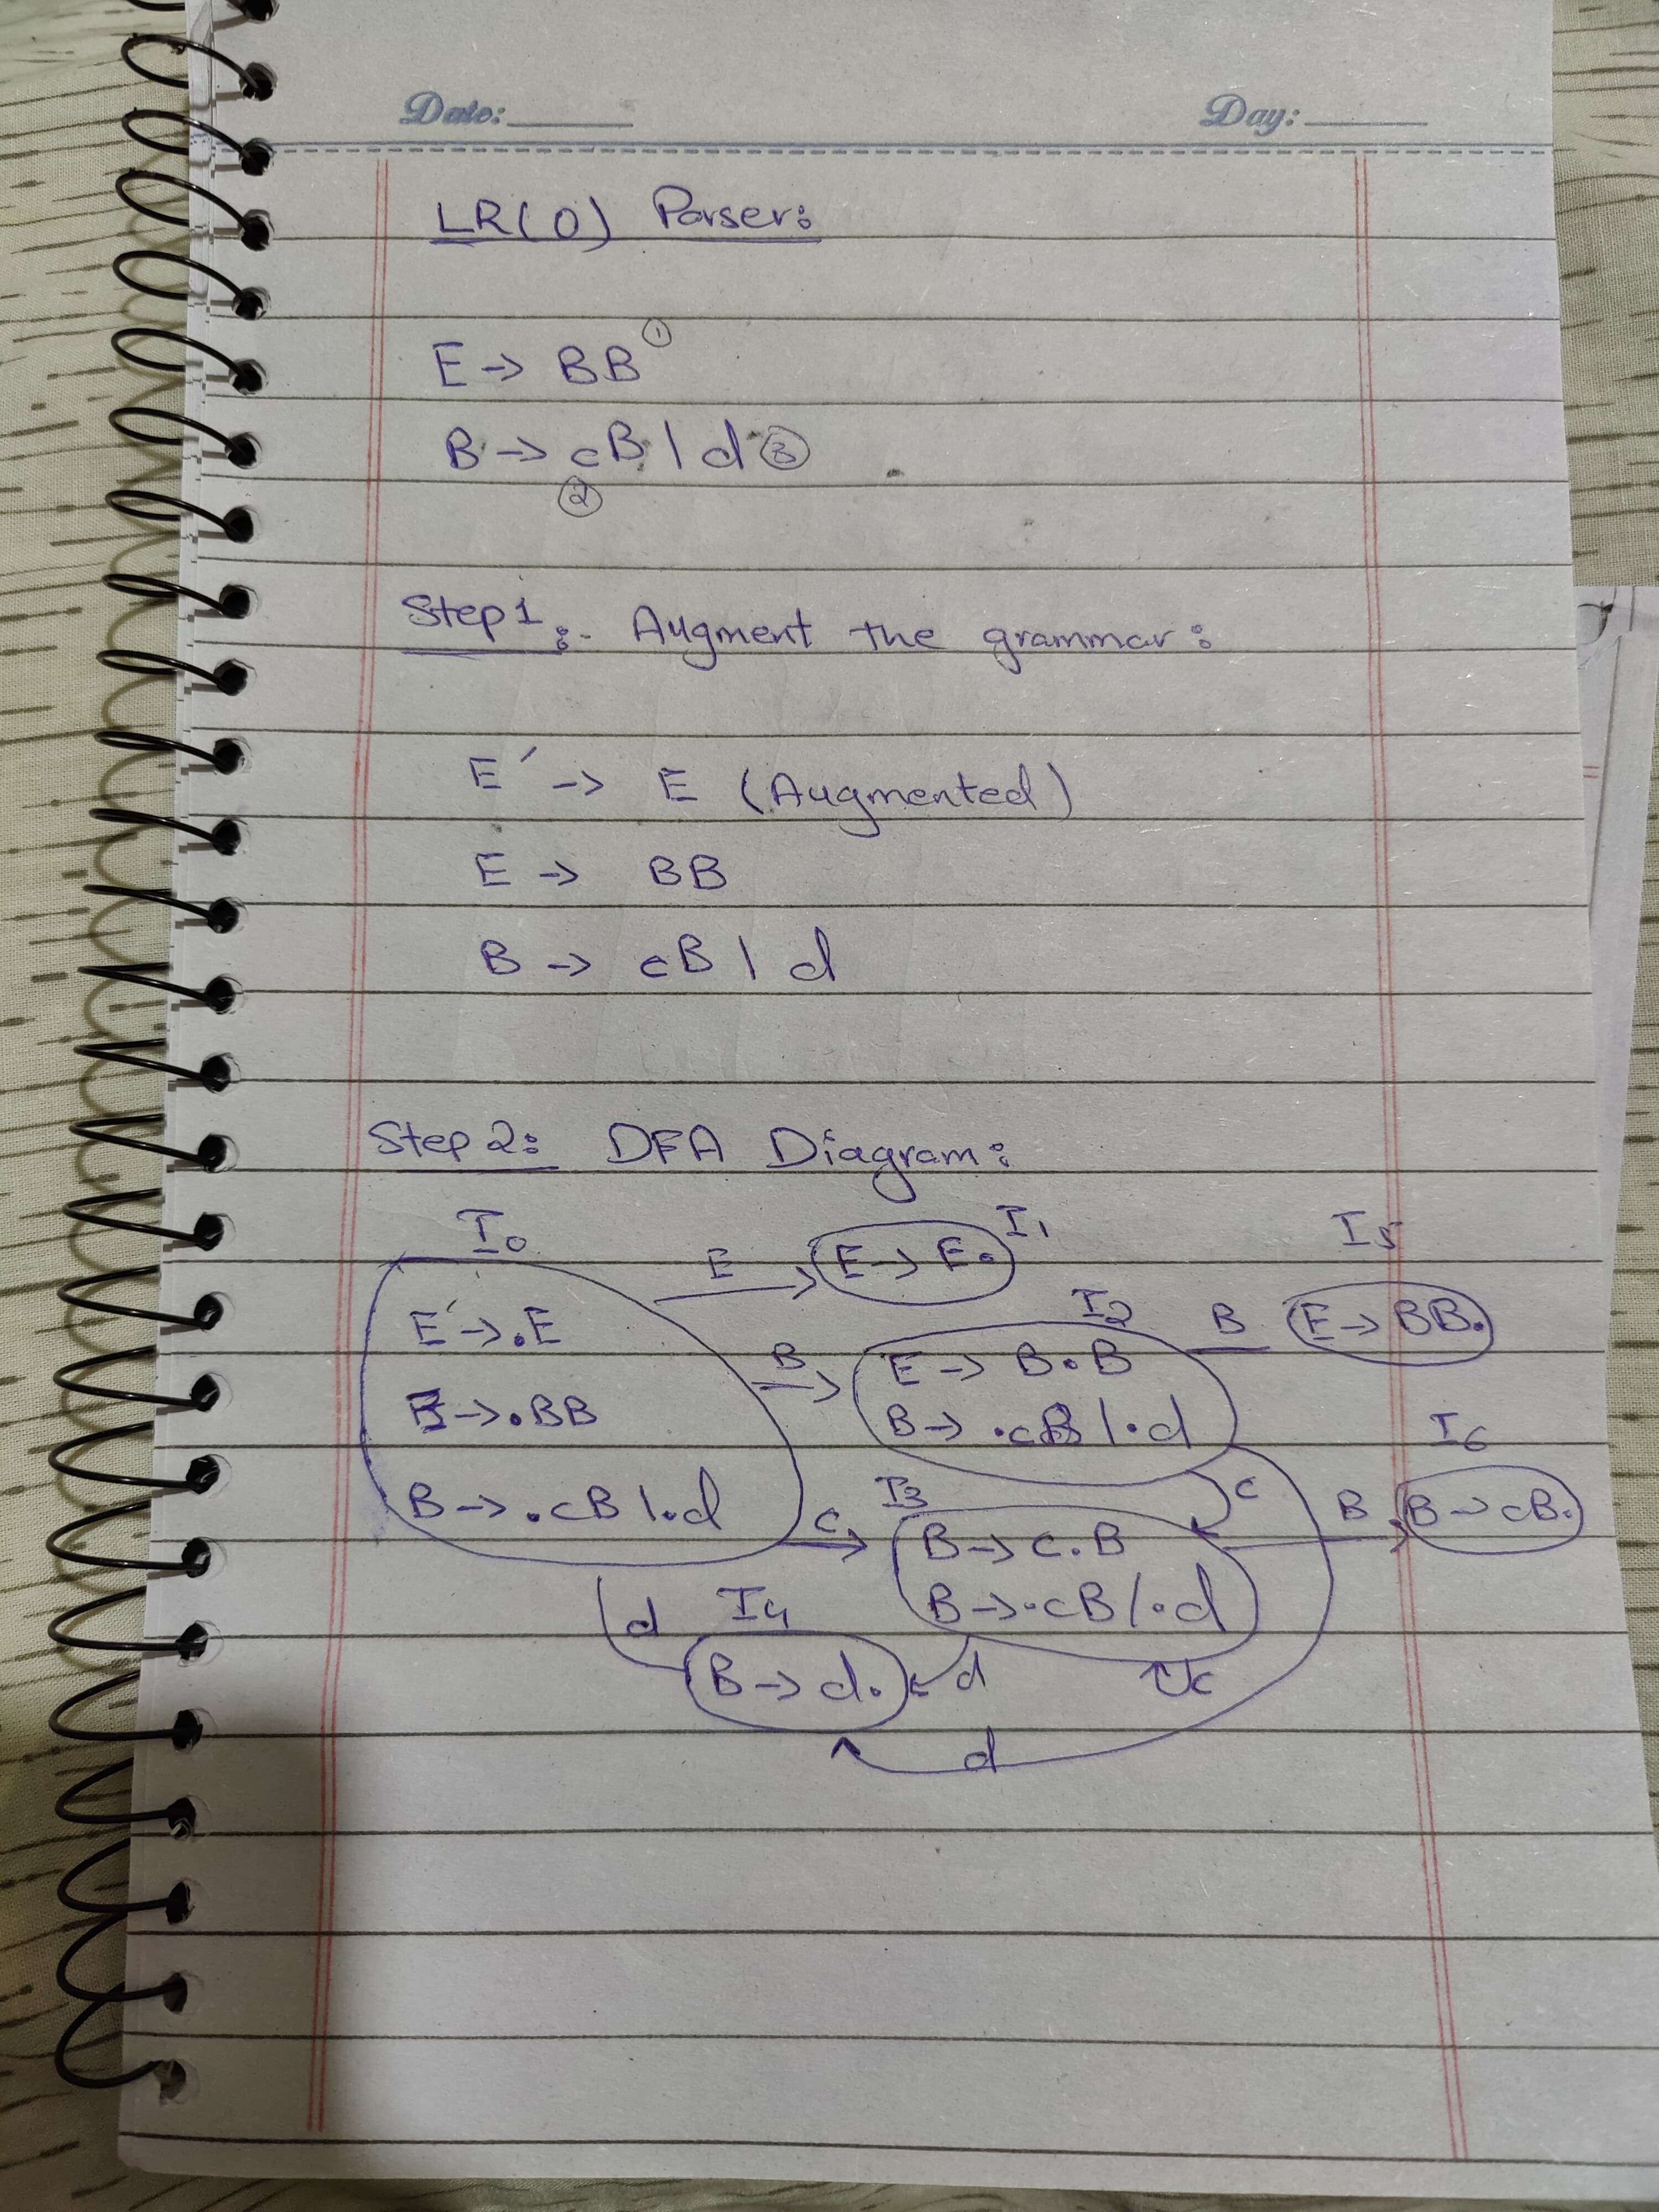 Date: Day:
LR(0) Parser:
E -> BB ①
B -> cB | d ③
②
Step 1:- Augment the grammar:
E' -> E (Augmented)
E -> BB
B -> cB | d
Step 2: DFA Diagram:
I0 E E -> E. I1 I5
E' -> .E I2 B E -> BB.
B E -> B.B
E -> .BB B -> .cB | .d I6
B -> .cB | .d c I3 c B B -> cB.
B -> c.B
d I4 B -> .cB / .d
B -> d. d c
d